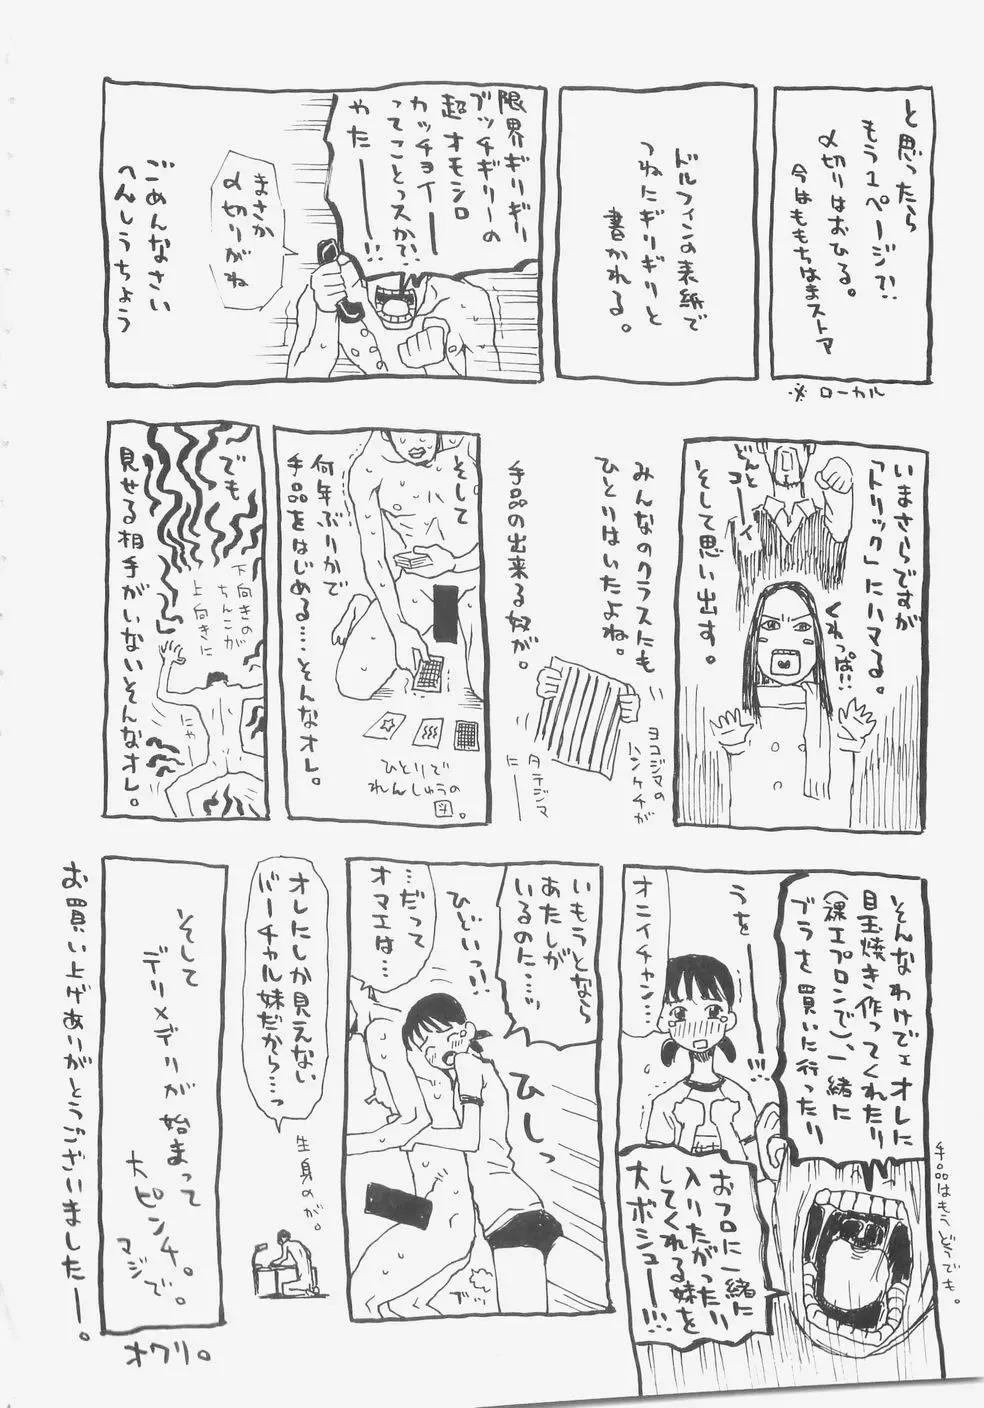 と思ったら
もう1ページ?!
〆切りはおひる。
今はももちはまストア
※ローカル
ドルフィンの表紙で
つねにギリギリと
書かれる。
限界ギリギリ
ブッチギリーの
超オモシロ
カッチョイー
ってことっスか?!
やたー!!
まさか
〆切りがね
ごめんなさい
へんしうちょう
いまさらですが
「トリック」にハマる。
そして思い出す。
どんと
コーイ
くわっぱ!!
みんなのクラスにも
ひとりはいたよね。
手品の出来る奴が。
ヨコジマの
ハンケチが
タテジマ
にー
そして
何年ぶりかで
手品をはじめる…そんなオレ。
ひとりで
れんしゅうの
図。
でも
見せる相手がいないそんなオレ。
下向きの
ちんこが
上向きに
にゃー
そんなわけでェオレに
目玉焼き作ってくれたり
(裸エプロンで)、一緒に
ブラを買いに行ったり
おフロに一緒に
入りたがったり
してくれる妹を
大ボシュー!!!
手品はもうどうでも。
うをー!!!
オニイチャン…
いもうとなら
あたしが
いるのに…ッ
ひどいっ!!
ひしっ
…だって
オマエは…
オレにしか見えない
バーチャル妹だから…っ
生身のが。
そして
デリメデリが始まって
大ピンチ。
マジで。
オワリ。
お買い上げありがとうございましたー。